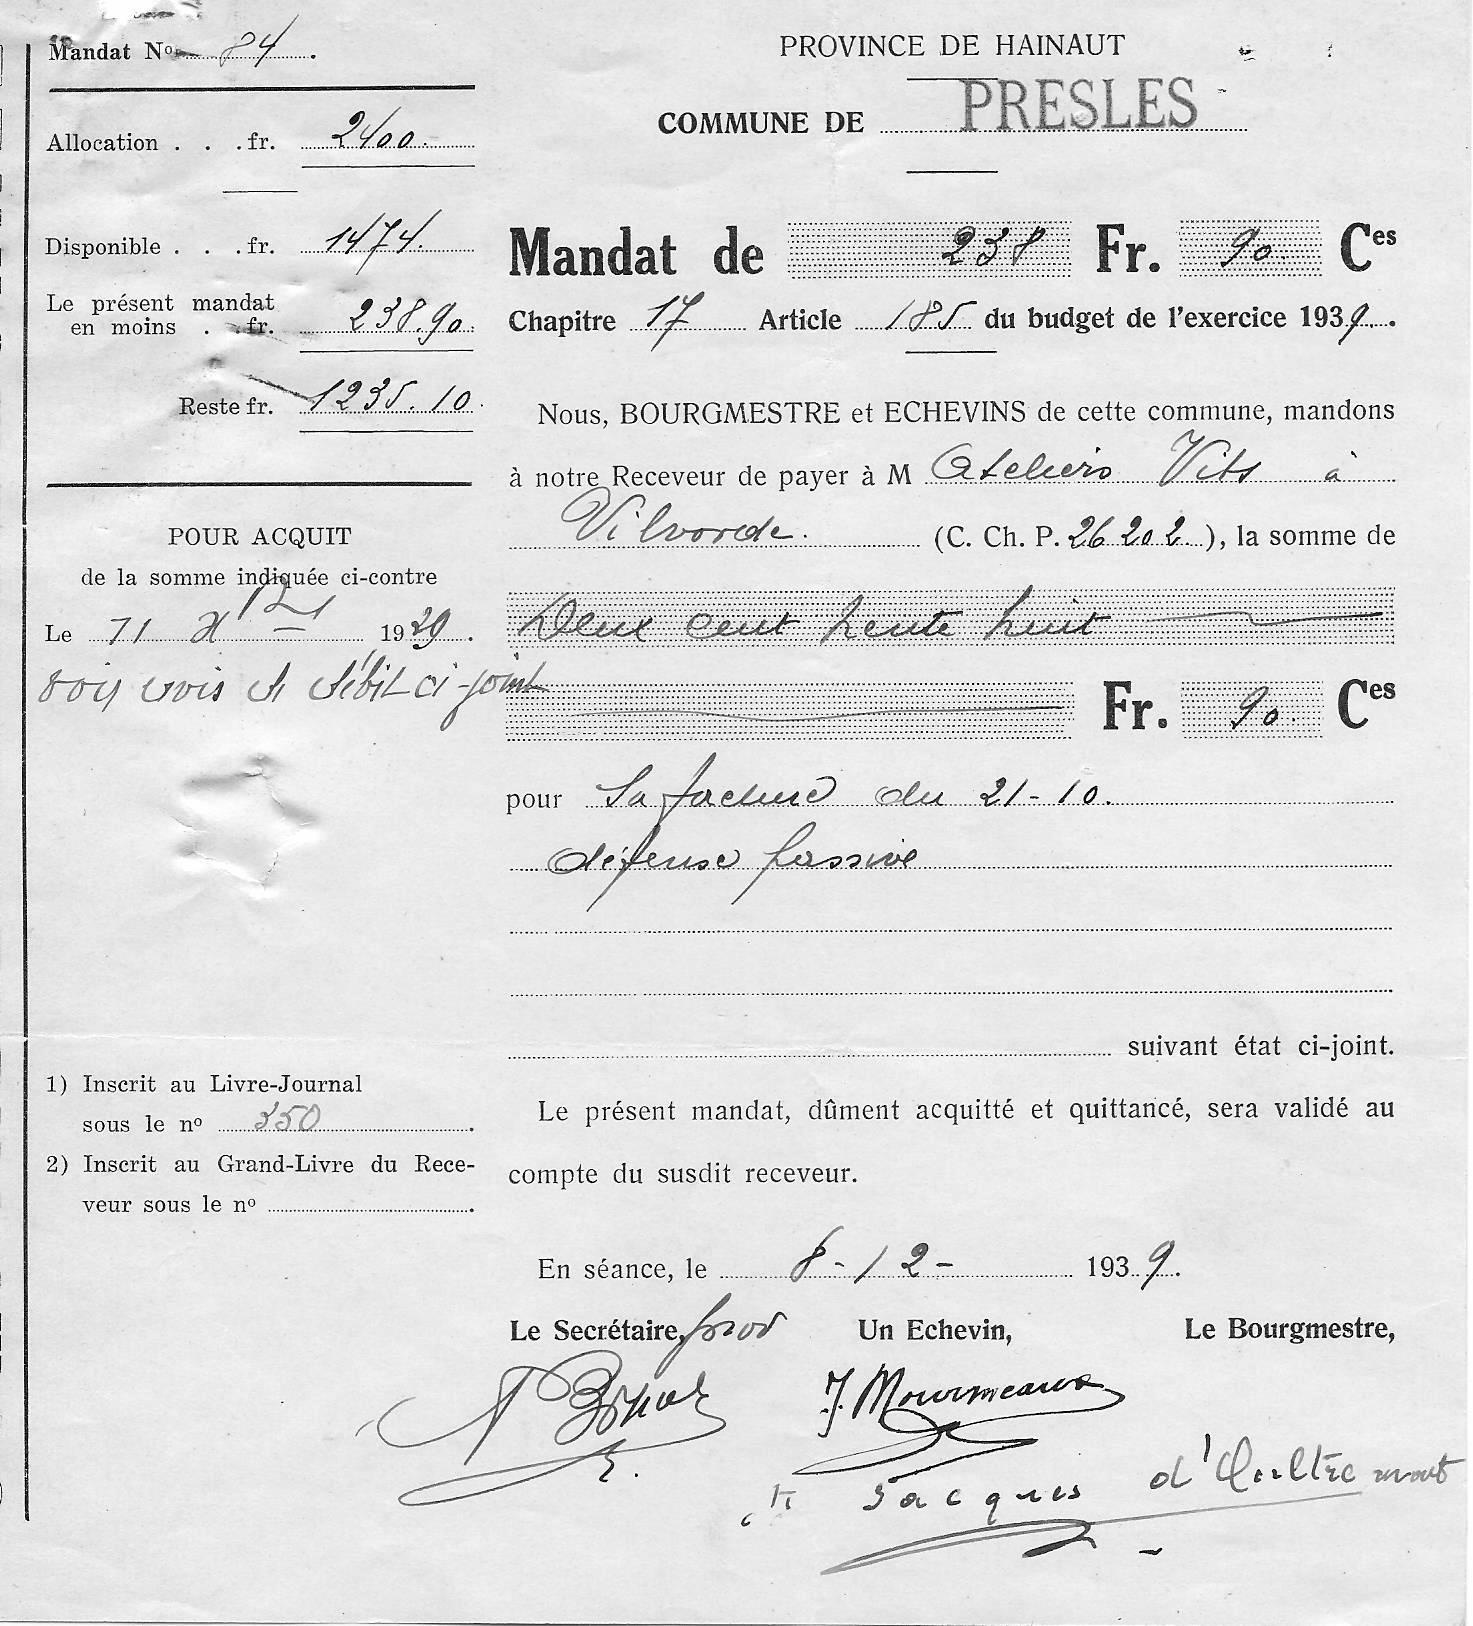 Mandat Nº 84.
Allocation . . . fr. 2400.
Disponible . . . fr. 1474.
Le présent mandat
en moins . fr. 238.90.
Reste fr. 1235.10.
POUR ACQUIT
de la somme indiquée ci-contre
Le 11 Xbre 1939.
ci-joint
1) Inscrit au Livre-Journal
sous le nº 350.
2) Inscrit au Grand-Livre du Rece-
veur sous le nº .
PROVINCE DE HAINAUT
COMMUNE DE PRESLES
Mandat de 238 Fr. 90. Ces
Chapitre 17 Article 185 du budget de l'exercice 1939.
Nous, BOURGMESTRE et ECHEVINS de cette commune, mandons
à notre Receveur de payer à M Ateliers Vits à
Vilvorde. (C. Ch. P. 26202), la somme de
Deux cent trente huit
Fr. 90. Ces
pour sa facture du 21-10.
défense passive
suivant état ci-joint.
Le présent mandat, dûment acquitté et quittancé, sera validé au
compte du susdit receveur.
En séance, le 8-12- 1939.
Le Secrétaire, Un Echevin, Le Bourgmestre,
J. Mourmeaux
Cte Jacques d'Oultremont